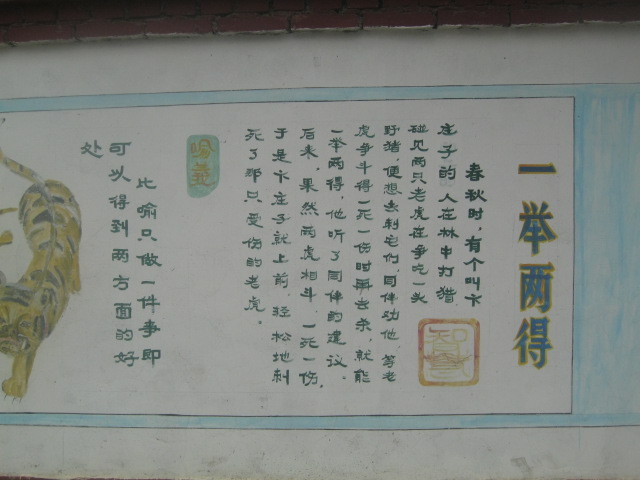 一举两得
春秋时，有个叫卞
庄子的人在林中打猎
碰见两只老虎在争吃一头
野猪，便想去刺它们，同伴劝他，等老
虎争斗得一死一伤时再去杀，就能
一举两得，他听了同伴的建议。
后来，果然两虎相斗，一死一伤，
于是卞庄子就上前，轻松地刺
死了那只受伤的老虎。
喻义
比喻只做一件事即
可以得到两方面的好
处